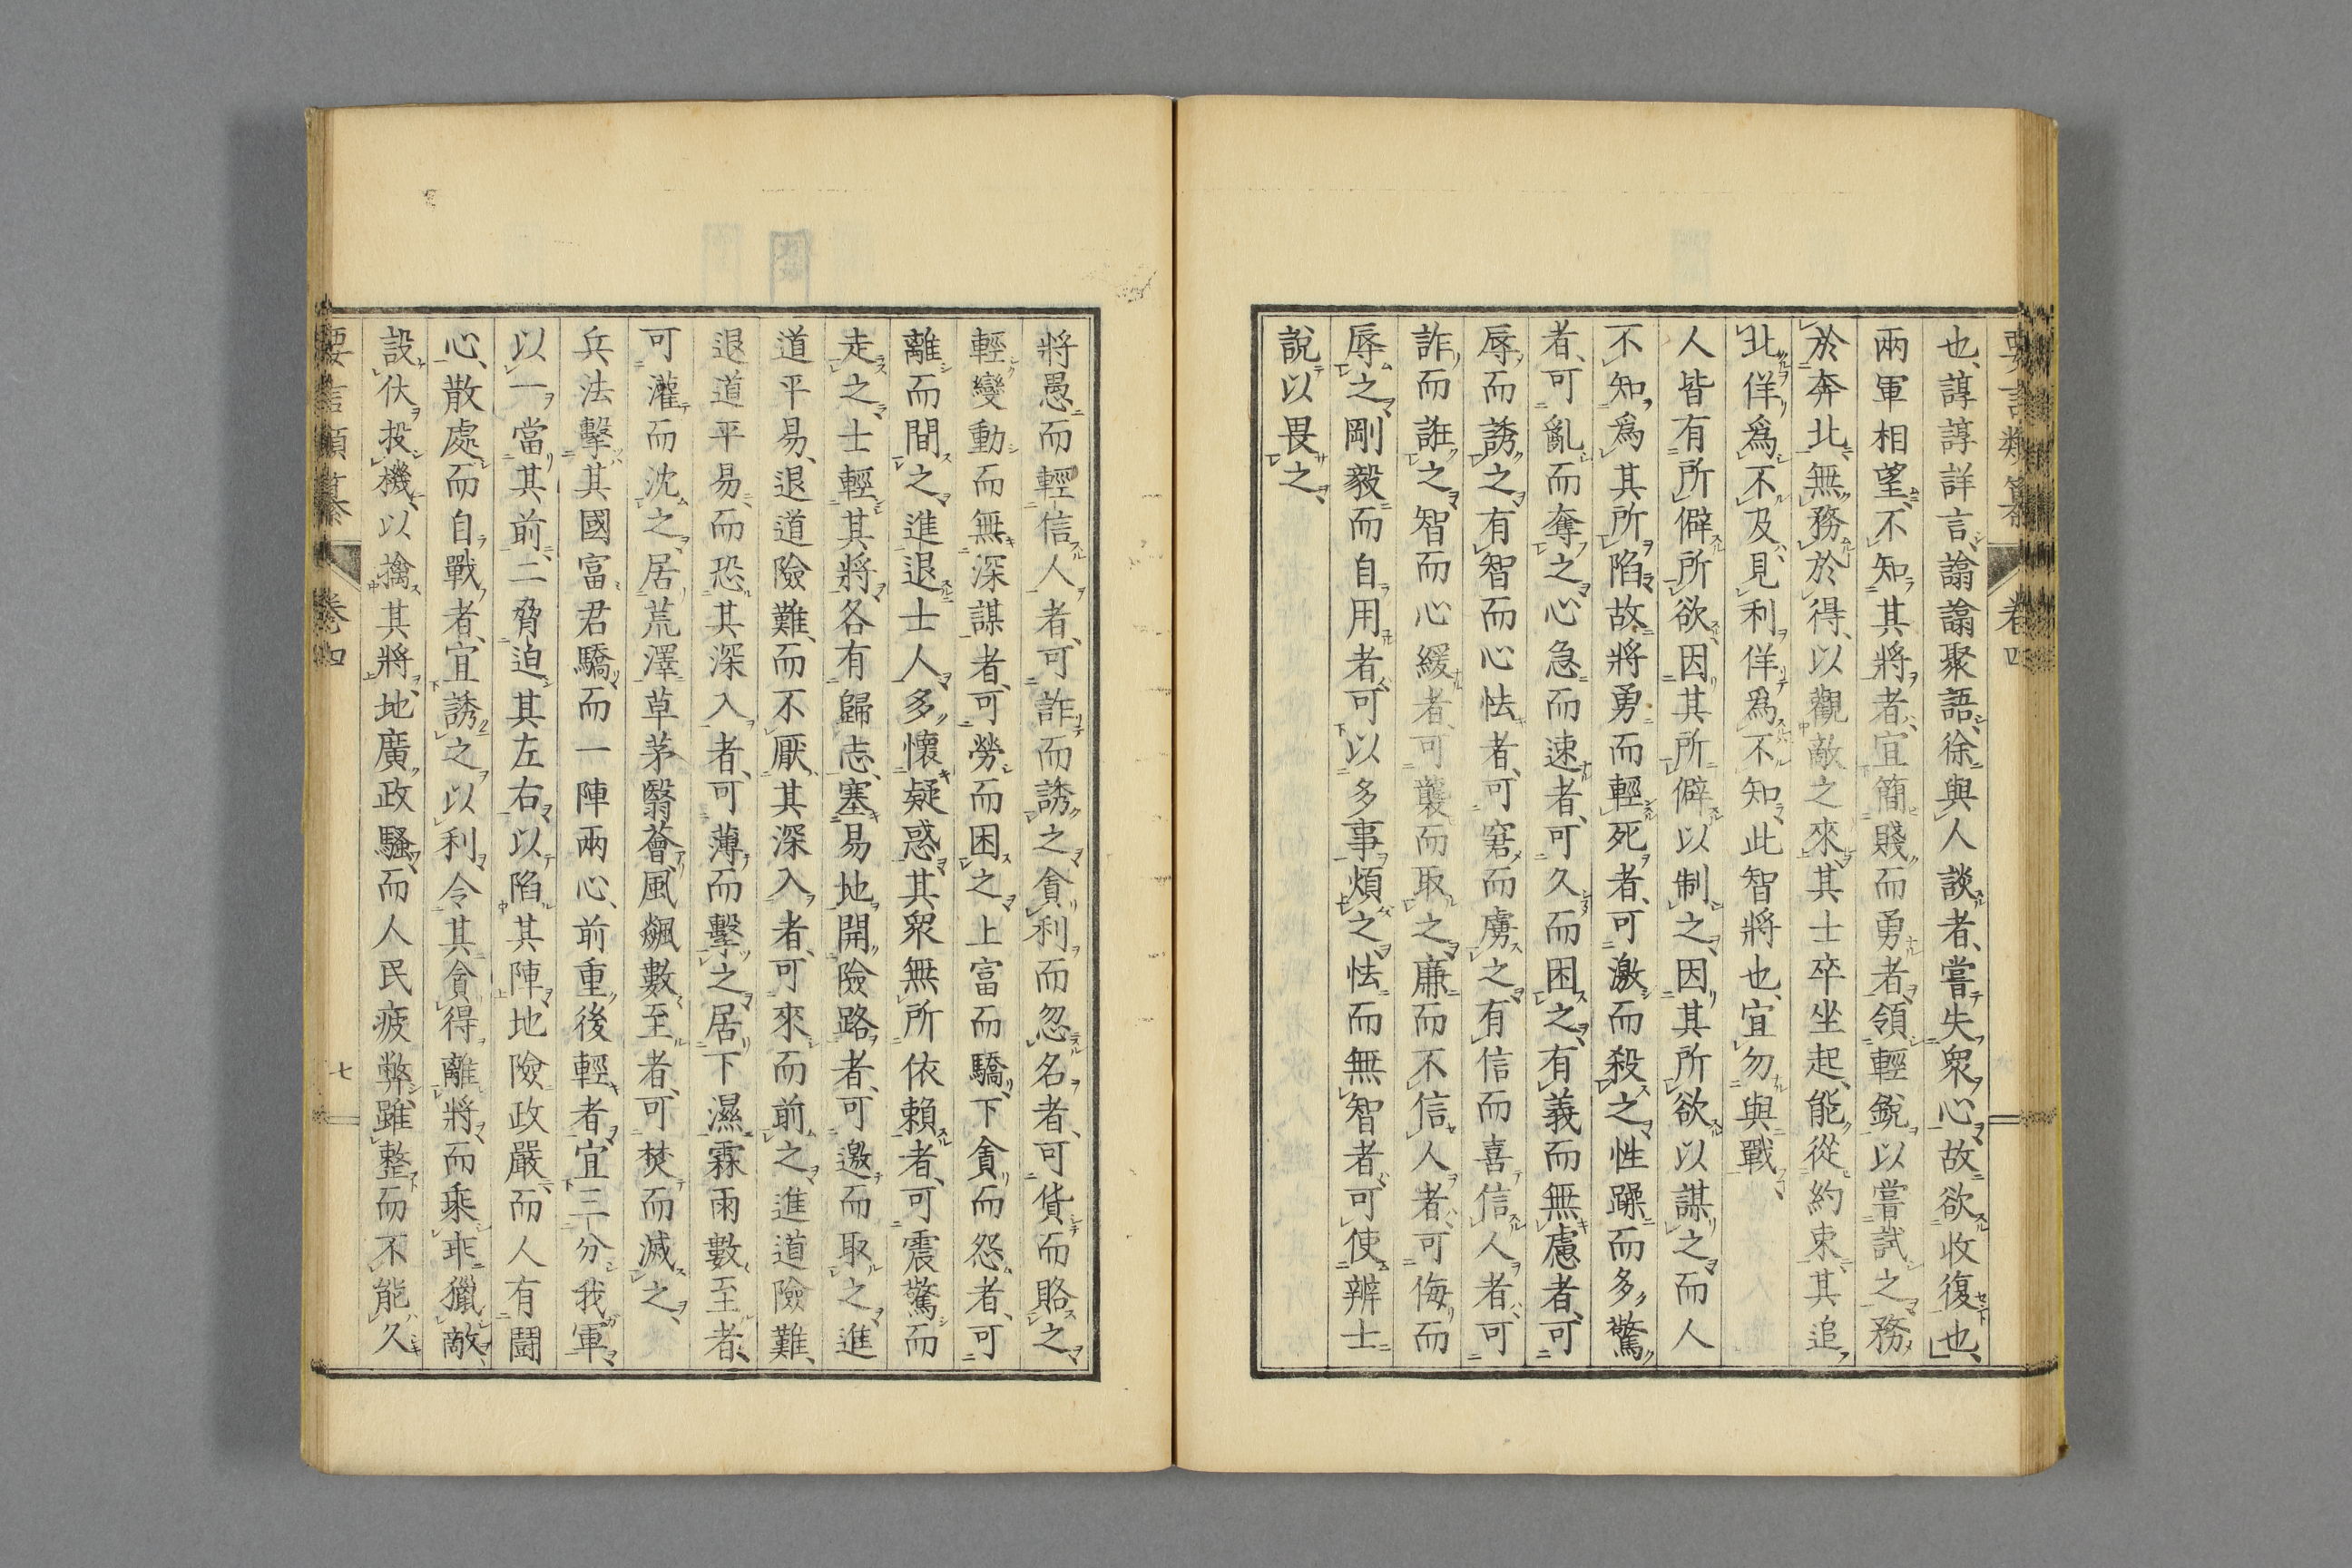 要言類纂 卷四
也、諄諄詳言、謫謫聚語、徐與人談者、嘗失衆心、故欲收復也、
兩軍相望、不知其將者、宜簡賤而勇者、領輕銳以嘗試之、務
於奔北、無務於得、以觀敵之來、其士卒坐起、能從約束、其追
北佯爲不及、見利佯爲不知、此智將也、宜勿與戰、
人皆有所僻所欲、因其所僻以制之、因其所欲以謀之、而人
不知爲其所陷、故將勇而輕死者、可激而殺之、性躁而多驚
者、可亂而奪之、心急而速者、可久而困之、有義而無慮者、可
辱而誘之、有智而心怯者、可窘而虜之、有信而喜信人者、可
詐而誑之、智而心緩者、可襲而取之、廉而不信人者、可侮而
辱之、剛毅而自用者、可以多事煩之、怯而無智者、可使辨士
說以畏之、
將愚而輕信人者、可詐而誘之、貪利而忽名者、可貨而賂之、
輕變動而無深謀者、可勞而困之、上富而驕、下貪而怨者、可
離而間之、進退士人多懷疑惑、其衆無所依賴者、可震驚而
走之、士輕其將、各有歸志、塞易地開險路者、可邀而取之、進
道平易、退道險難、而不厭其深入者、可來而前之、進道險難、
退道平易、而恐其深入者、可薄而擊之、居下濕霖雨數至者、
可灌而沈之、居荒澤草茅翳薈風飆數至者、可焚而滅之、
兵法擊其國富君驕而一陣兩心、前重後輕者、宜三分我軍、
以一當其前、二脅迫其左右、以陷其陣、地險政嚴而人有鬪
心、散處而自戰者、宜誘之以利、令其貪得離將而乘乖獵敵、
設伏投機、以擒其將、地廣政騷而人民疲弊、雖整而不能久
要言類纂 卷四 七